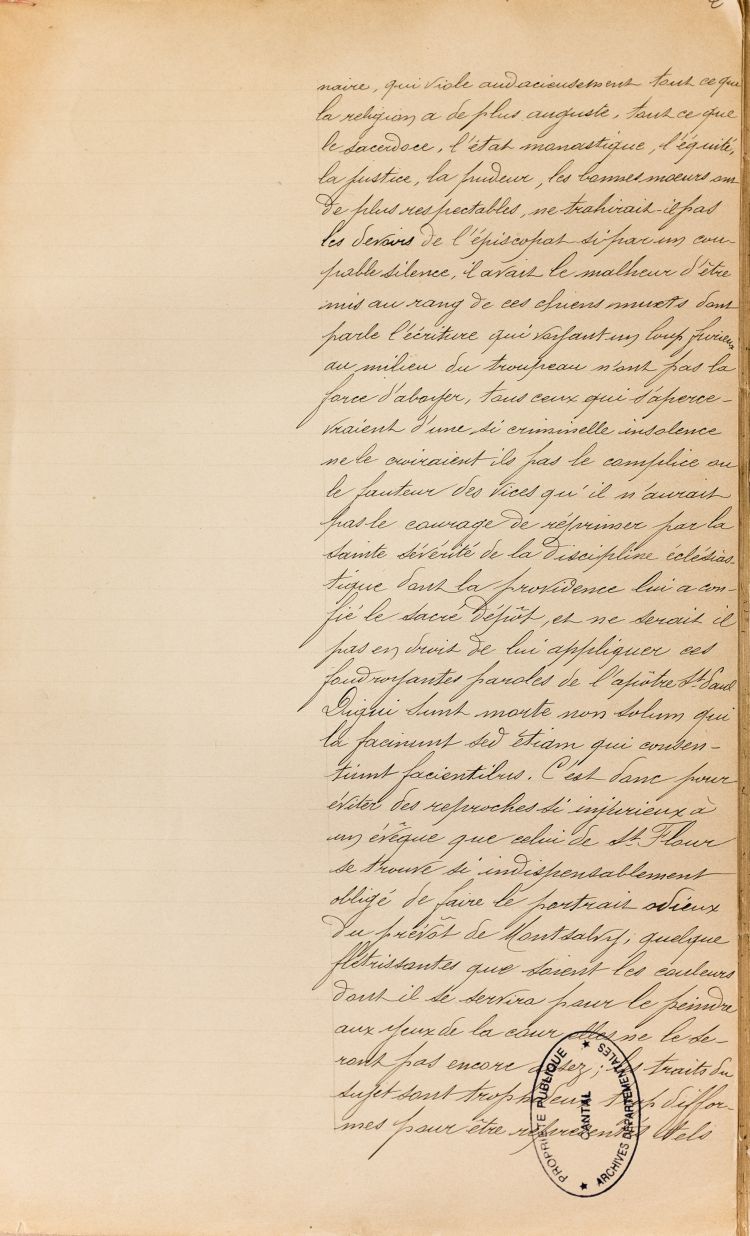 naire, qui viole audacieusement tout ce que
la religion a de plus auguste, tout ce que
le sacerdoce, l'état monastique, l'équité,
la justice, la pudeur, les bonnes moeurs ont
de plus respectables, ne trahirait-il pas
les devoirs de l'épiscopat si par un cou-
pable silence, il avait le malheur d'être
mis au rang de ces chiens muets dont
parle l'écriture qui voyant un loup furieux
au milieu du troupeau n'ont pas la
force d'aboyer, tous ceux qui s'aperce-
vraient d'une si criminelle insolence
ne le croiraient ils pas le complice ou
le fauteur des vices qu'il n'aurait
pas le courage de réprimer par la
sainte sévérité de la discipline éclésias-
tique dont la providence lui a con-
fié le sacré dépôt, et ne serait il
pas en droit de lui appliquer ces
foudroyantes paroles de l'apôtre St. Paul
Digni sunt morte non solum qui
la faciunt sed étiam qui consen-
tiunt facientibus. C'est donc pour
éviter des reproches si injurieux à
un évêque que celui de St. Flour
se trouve si indispensablement
obligé de faire le portrait odieux
du prévôt de Montsalvy; quelque
flétrissantes que soient les couleurs
dont il se servira pour le peindre
aux yeux de la cour elles ne le se-
ront pas encore assez; les traits du
sujet sont trop trop diffor-
mes pour être représentés tels
PROPRIETE PUBLIQUE
CANTAL
ARCHIVES DEPARTEMENTALES